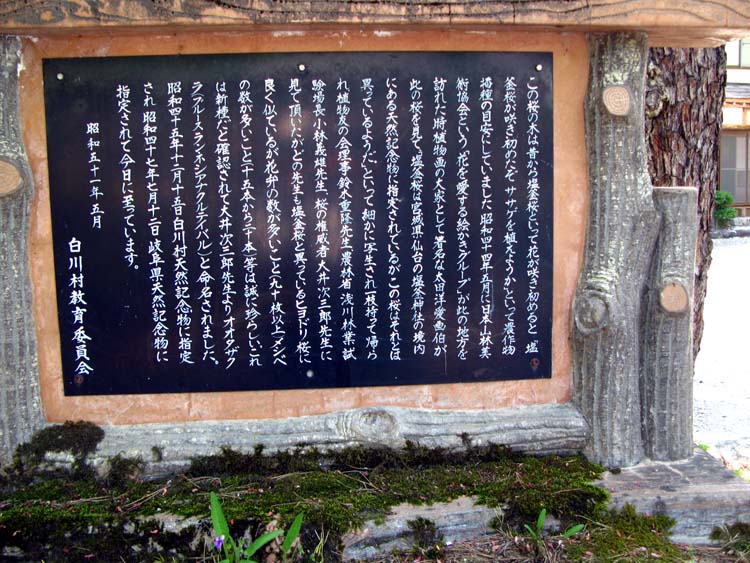 この桜の木は昔から塩釜桜といって花が咲き初めると 塩
釜桜が咲き初めたぞ、ササゲを植えようかといって農作物
播種の目安にしていました。昭和四十四年五月に日本山林美
術協会という、花を愛する絵かきグループが此の地方を
訪れた時植物画の大家として著名な太田洋愛画伯が
此の桜を見て、塩釜桜は宮城県仙台の塩釜神社の境内
にある天然記念物に指定されているが、この桜はそれとは
異っているようだといって 細かに写生され一枝持って帰ら
れ植物友の会理事鈴木重隆先生、農林省 浅川林業試
験場長、小林義雄先生、桜の権威者大井次三郎先生に
見て頂いたが、どの先生も塩釜桜と異っているヒヨドリ桜に
良く似ているが花弁の数が多いこと（九十枚以上）メシベ
の数が多いこと（十五本から三十本）等は誠に珍らしい、これ
は新種だと確認されて大井次三郎先生よりオオタザク
ラ（プルーヌス・ランネシアナクルテイバル）と命名されました。
昭和四十五年十二月十五日白川村天然記念物に指定
され 昭和四十七年七月十二日 岐阜県天然記念物に
指定されて今日に至っています。
昭和五十一年五月
白川村教育委員会